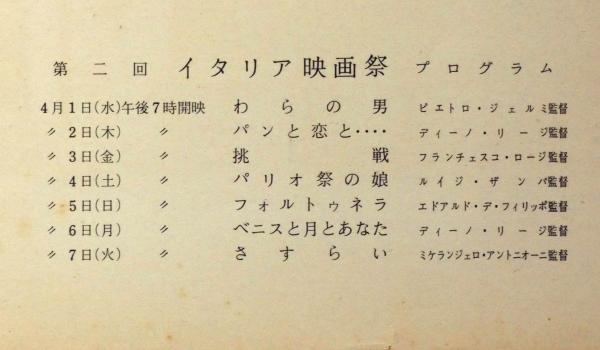 第二回 イタリア映画祭 プログラム
4月1日(水)午後7時開映 わらの男 ピエトロ・ジェルミ監督
〃 2日(木) 〃 パンと恋と‥‥ ディーノ・リージ監督
〃 3日(金) 〃 挑戦 フランチェスコ・ロージ監督
〃 4日(土) 〃 パリオ祭の娘 ルイジ・ザンパ監督
〃 5日(日) 〃 フォルトゥネラ エドアルド・デ・フィリッポ監督
〃 6日(月) 〃 ベニスと月とあなた ディーノ・リージ監督
〃 7日(火) 〃 さすらい ミケランジェロ・アントニオーニ監督